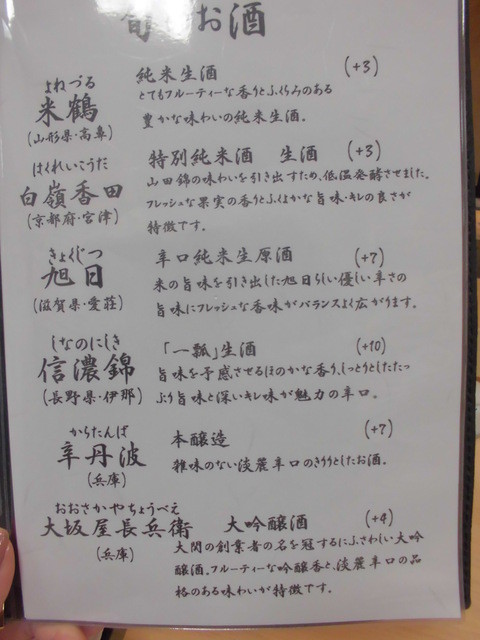 旬のお酒
よねづる
米鶴
(山形県・高畠)
純米生酒 (+3)
とてもフルーティーな香りとふくらみのある
豊かな味わいの純米生酒。
はくれいこうだ
白嶺香田
(京都府・宮津)
特別純米酒 生酒 (+3)
山田錦の味わいを引き出すため、低温発酵させました。
フレッシュな果実の香りとふくよかな旨味・キレの良さが
特徴です。
きょくじつ
旭日
(滋賀県・愛荘)
辛口純米生原酒 (+7)
米の旨味を引き出した旭日らしい優しい辛さの
旨味にフレッシュな香味がバランスよく広がります。
しなのにしき
信濃錦
(長野県・伊那)
「一瓢」生酒 (+10)
旨味を予感させるほのかな香り、しっとりとしたたっ
ぷり旨味と深いキレ味が魅力の辛口。
からたんば
辛丹波
(兵庫)
本醸造 (+7)
雑味のない淡麗辛口のきりりとしたお酒。
おおさかやちょうべえ
大坂屋長兵衛
(兵庫)
大吟醸酒 (+4)
大関の創業者の名を冠するにふさわしい大吟
醸酒。フルーティーな吟醸香と、淡麗辛口の品
格のある味わいが特徴です。